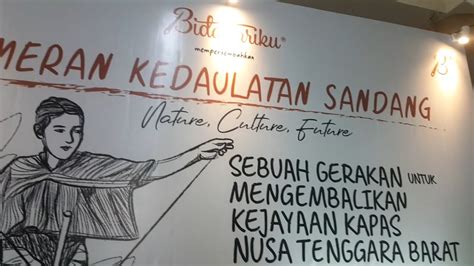 mempersembahkan
MERAN KEDAULATAN SANDANG
Nature, Culture, Future
SEBUAH GERAKAN UNTUK
MENGEMBALIKAN
KEJAYAAN KAPAS
NUSA TENGGARA BARAT